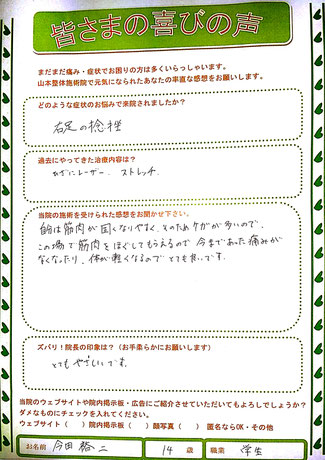 皆さまの喜びの声
まだまだ痛み・症状でお困りの方は多くいらっしゃいます。
山本整体施術院で元気になられたあなたの率直な感想をお願いします。
どのような症状のお悩みで来院されましたか？
右足の捻挫
過去にやってきた治療内容は？
レーザー、ストレッチ
当院の施術を受けられた感想をお聞かせ下さい。
自分は筋肉が固くなりやすく、そのためケガが多いので、
この場で筋肉をほぐしてもらえるので今まであった痛みが
なくなったり、体が軽くなるのでとても良いです。
ズバリ！院長の印象は？（お手柔らかにお願いします）
とてもやさしいです。
当院のウェブサイトや院内掲示板・広告にご紹介させていただいてもよろしでしょうか？
ダメなものにチェックを入れてください。
ウェブサイト（　）院内掲示板（　）顔写真（　）　匿名ならOK・その他
お名前 今田 二 14 歳 職業 学生